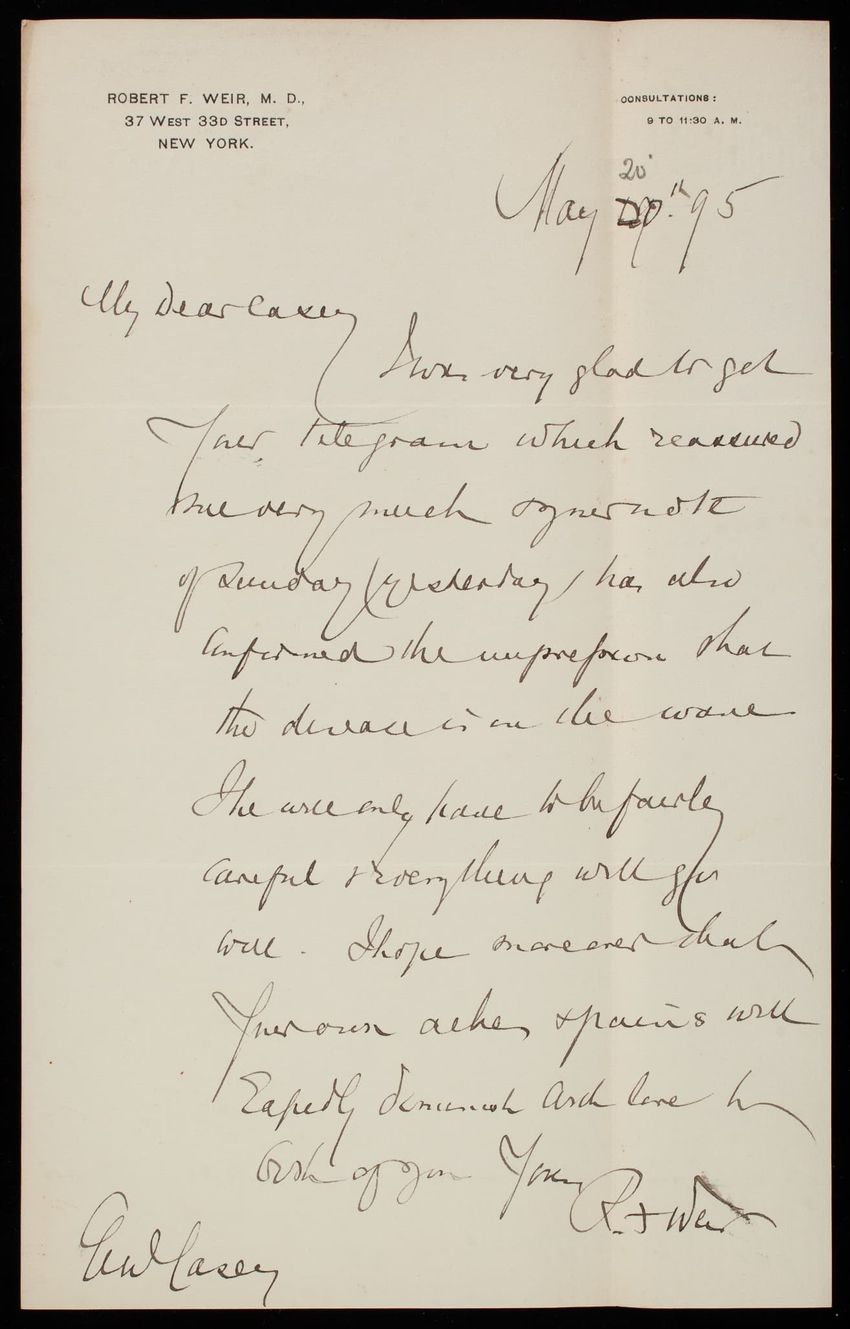 ROBERT F. WEIR, M. D.,
37 WEST 33D STREET,
NEW YORK.
CONSULTATIONS:
9 TO 11:30 A. M.
20
May 20th 95
My Dear Casey
I was very glad to get
Your telegram which reassured
me very much & your note
of Sunday (yesterday) has also
confirmed the impression that
the disease is on the wane
She will only have to be fairly
careful & everything will go
well. I hope moreover that
Your own aches & pains will
diminish With love to
both of you Yours
R. F. Weir
Genl Casey